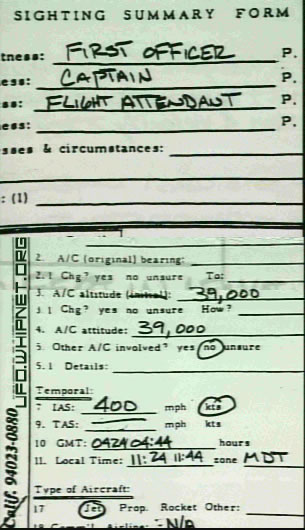 SIGHTING SUMMARY FORM
tness: FIRST OFFICER P.
ess: CAPTAIN P.
ss: FLIGHT ATTENDANT P.
ess: P.
sses & circumstances:
: (1)
2. A/C (original) bearing:
2.1 Chg? yes no unsure To:
3. A/C altitude (initial): 39,000
3.1 Chg? yes no unsure How?
4. A/C attitude: 39,000
5. Other A/C involved? yes no unsure
5.1 Details:
Temporal:
7 IAS: 400 mph kts
9. TAS: mph kts
10 GMT: 0424 04:44 hours
11. Local Time: 11:24 11:44 zone MDT
Type of Aircraft:
17 Jet Prop. Rocket Other:
18 Comm'l Airline: N/A
UFO.WHIPNET.ORG
Calif. 94023-0880